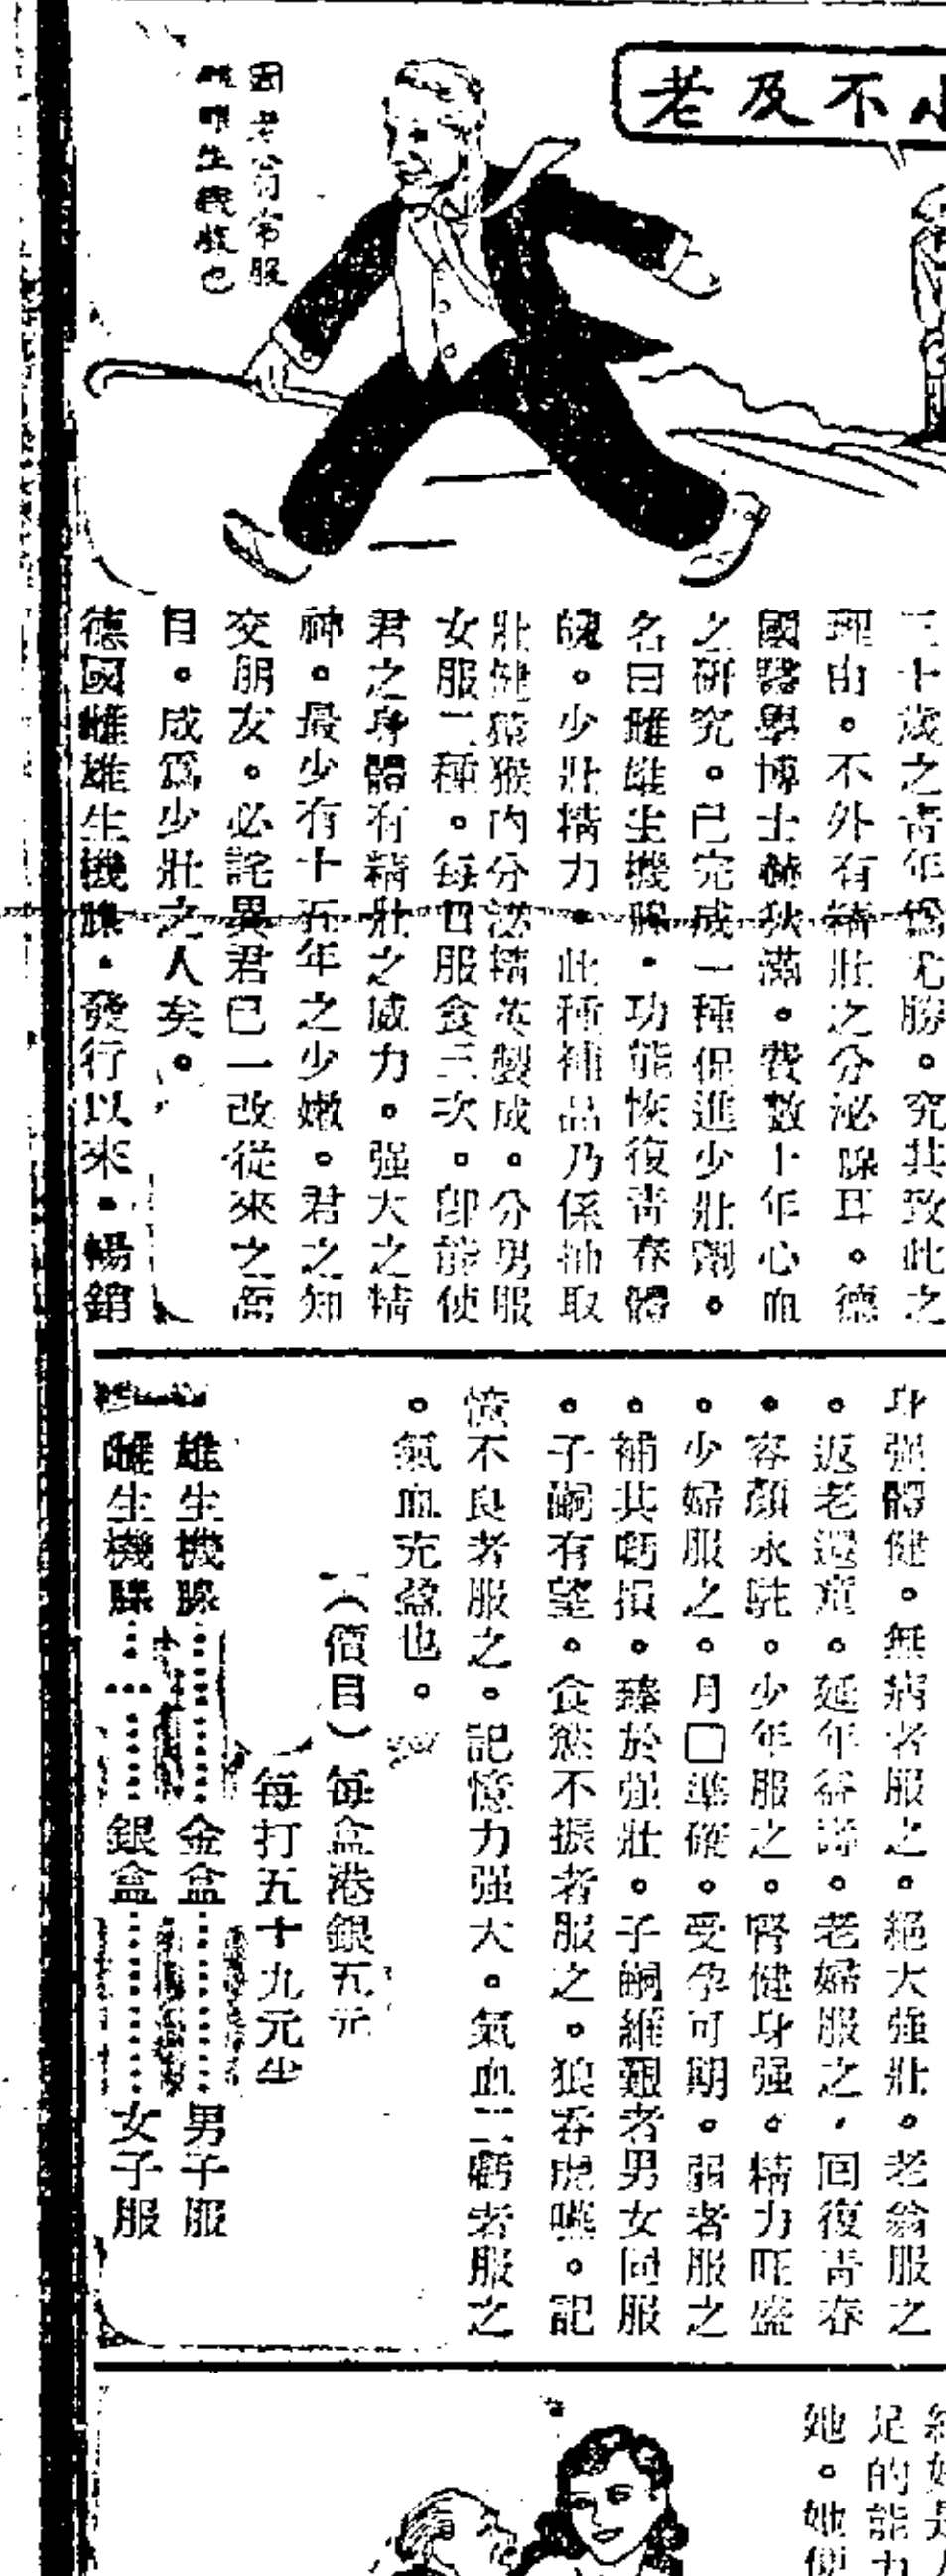 老及不小
因老公司常服
雌雄生機腺也
三十歲之青年為尤勝。究其致此之
理由。不外有精壯之分泌腺耳。德
國醫學博士赫狄滿。費數十年心血
之研究。已完成一種促進少壯劑。
名曰雌雄生機腺・功能恢復青春體
魄。少壯精力・此種補品乃係抽取
壯健猿猴內分泌精英製成。分男服
女服二種。每日服食三次。卽能使
君之身體有精壯之威力。强大之精
神。最少有十五年之少嫩。君之知
交朋友。必詫異君已一改從來之面
目。成爲少壯之人矣。
德國雌雄生機腺・發行以來・暢銷
身强體健。無病者服之。絕大强壯。老翁服之
。返老還童。延年益壽。老婦服之，回復青春
。容顏永駐。少年服之。腎健身强。精力旺盛
。少婦服之。月囗準確。受孕可期。弱者服之
。補其虧損。臻於强壯。子嗣維艱者男女同服
。子嗣有望。食慾不振者服之。狼吞虎嚥。記
憶不良者服之。記憶力强大。氣血二虧者服之
。氣血充盈也。
（價目）每盒港銀五元
每打五十九元半
雄生機腺……金盒……男子服
雌生機腺……銀盒……女子服
足的能力
她。她便